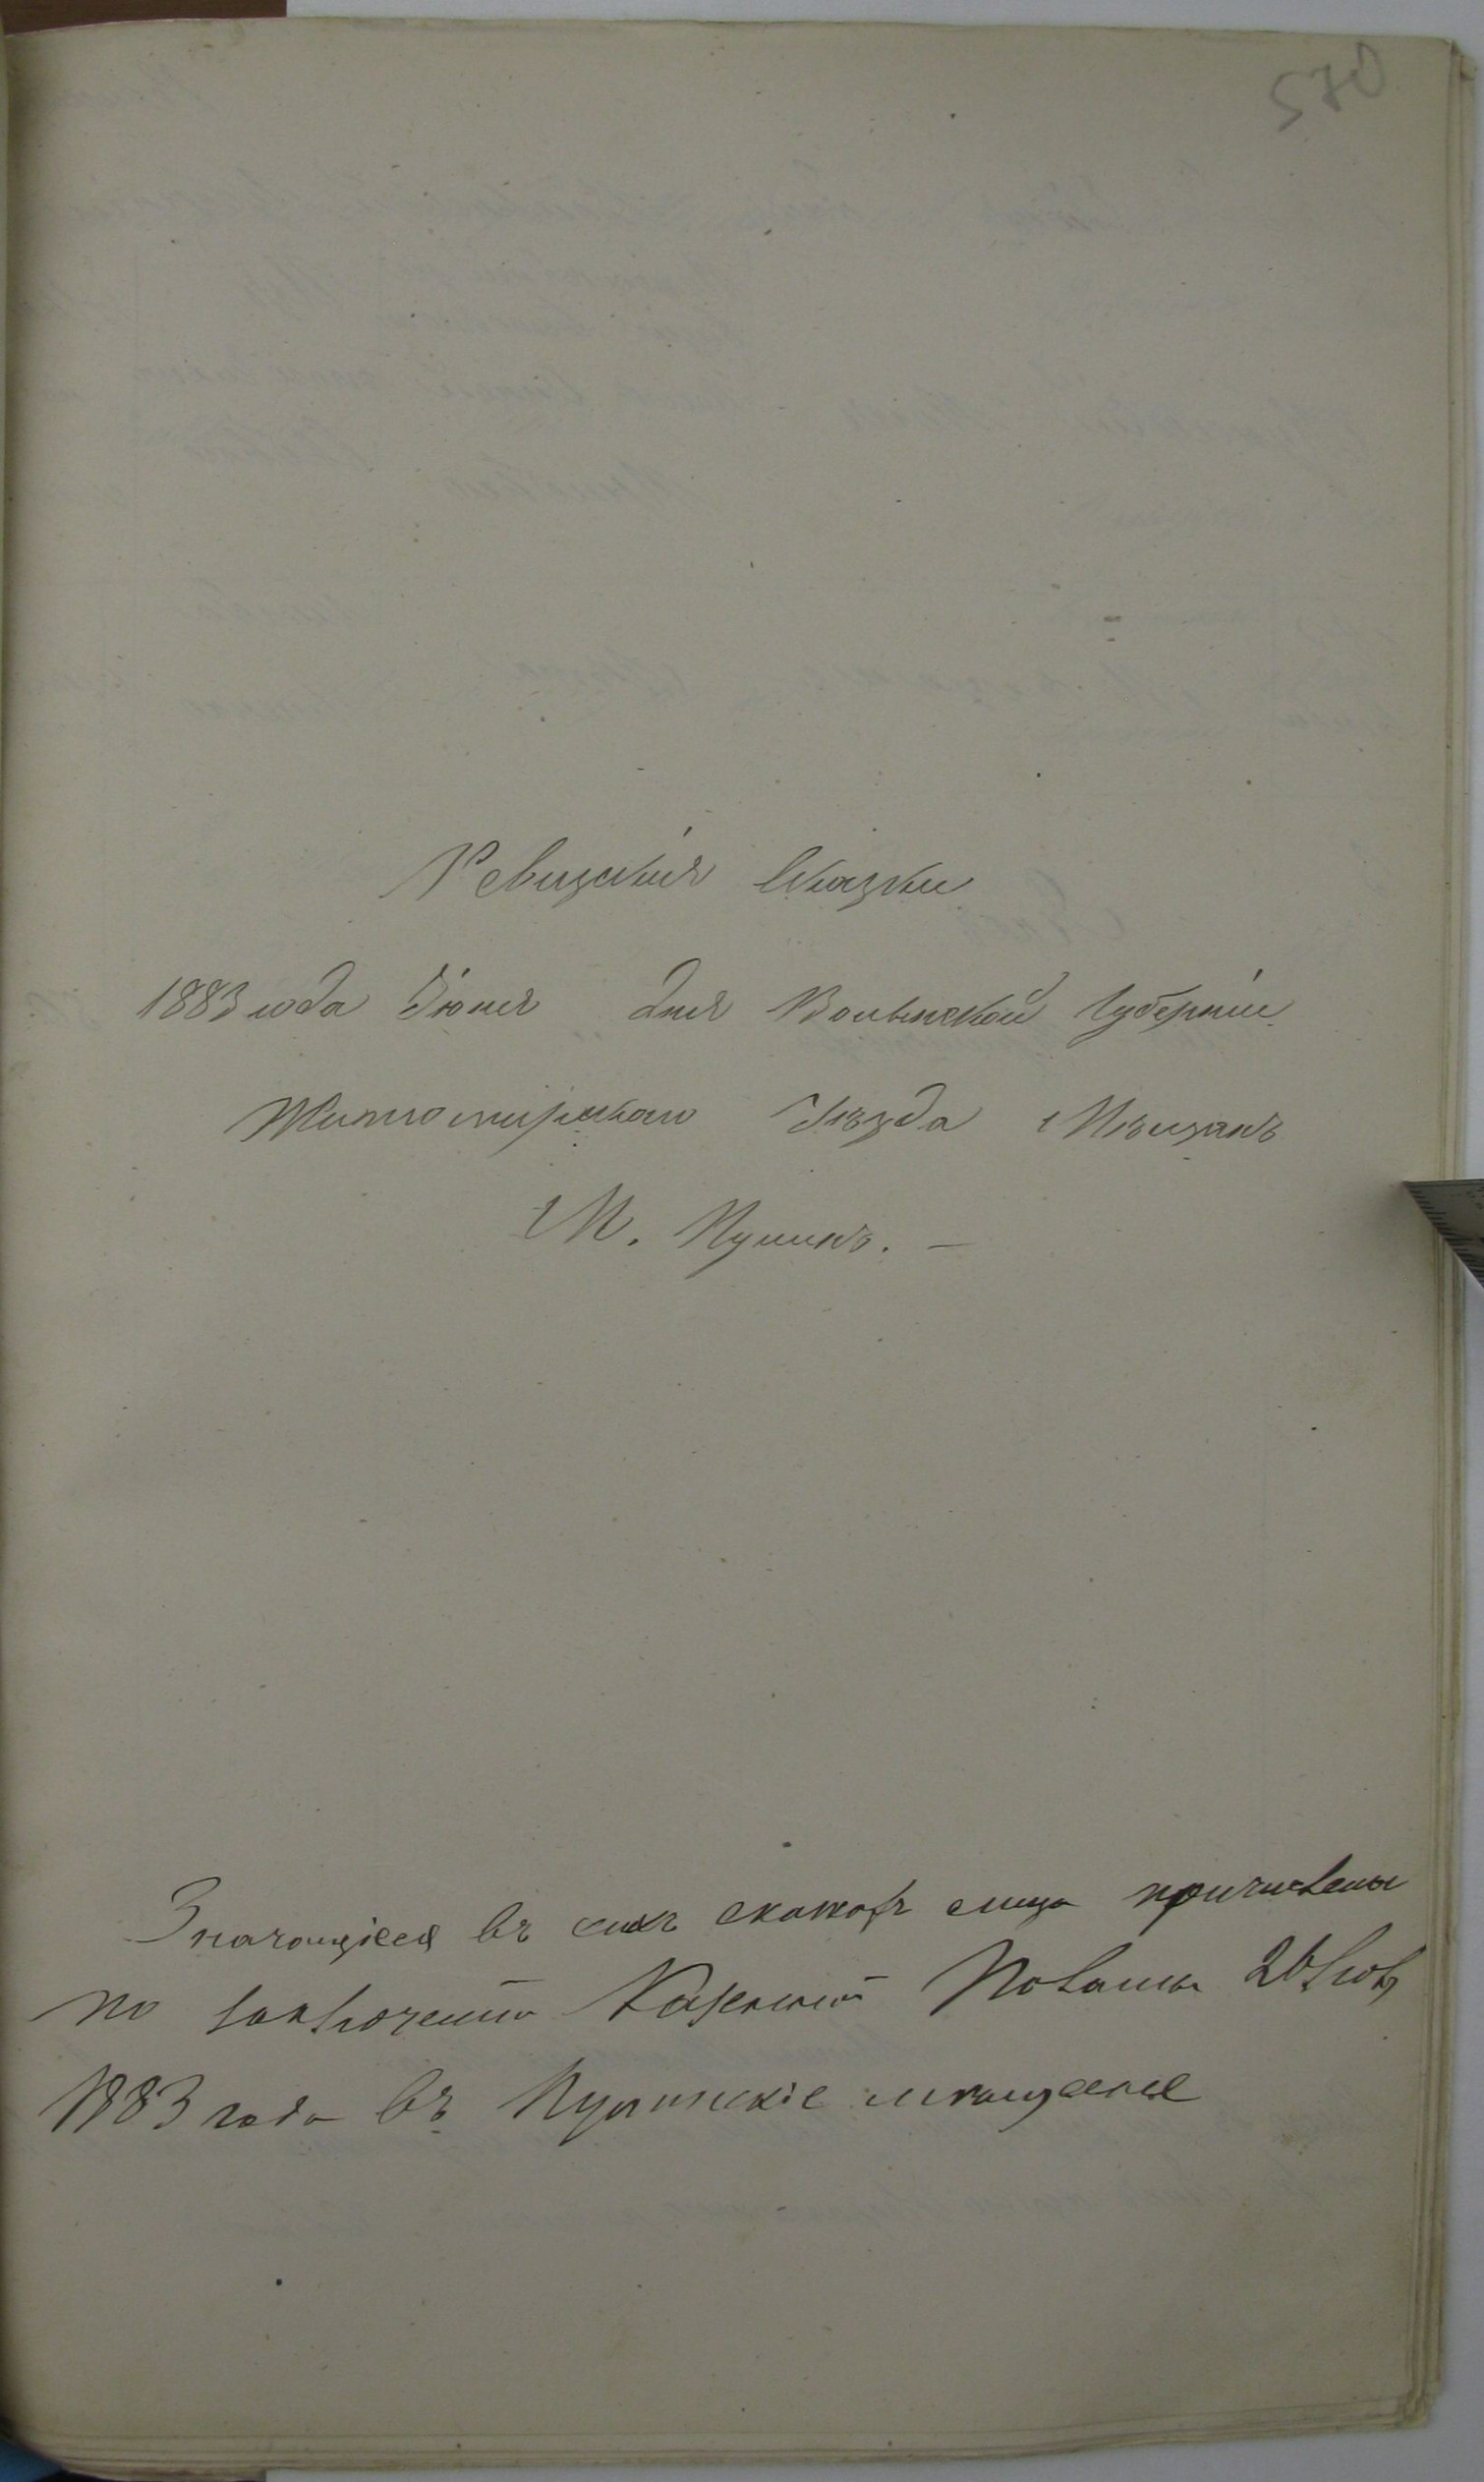 570
Ревизскія Сказки
1883 года Іюня дня Волынской Губерніи
Житомирскаго Уѣзда Мѣщанъ
М. Пулинъ. —
Значащіеся въ сихъ сказкахъ лица причислены
по заключенію Казенной Палаты 26
1883 года въ Пулинскіе мѣщане